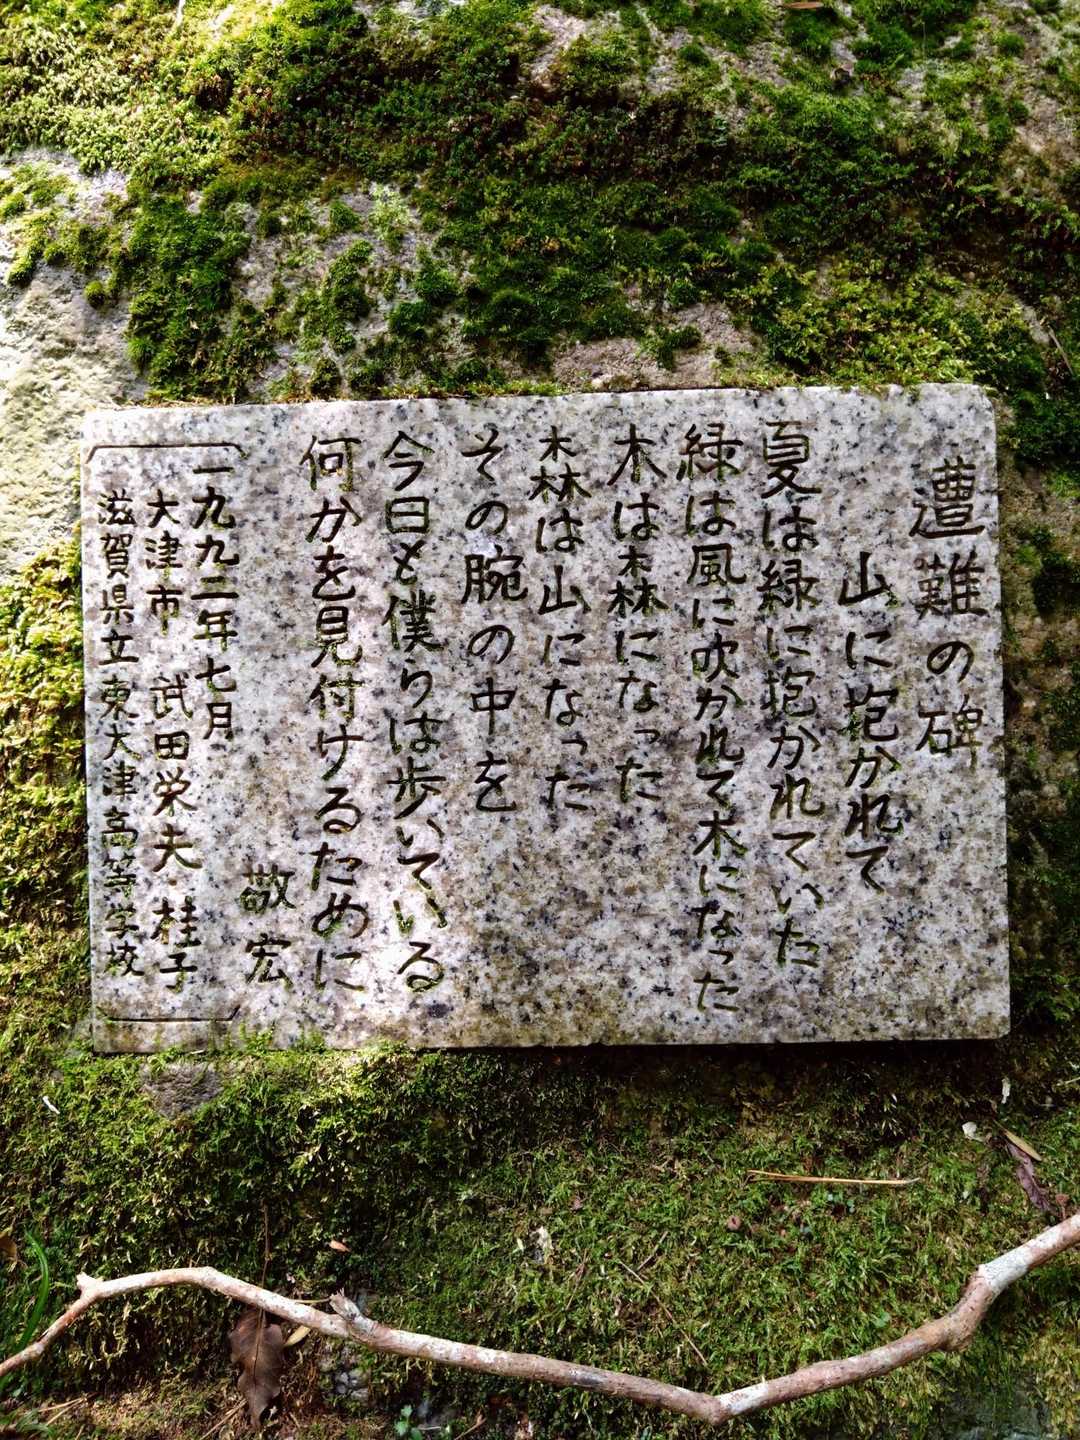 遭難の碑
山に抱かれて
夏は緑に抱かれていた
緑は風に吹かれて木になった
木は森林になった
森林は山になった
その腕の中を
今日も僕らは歩いている
何かを見付けるために
敬宏
一九九二年七月
大津市 武田栄夫・桂子
滋賀県立東大津高等学校